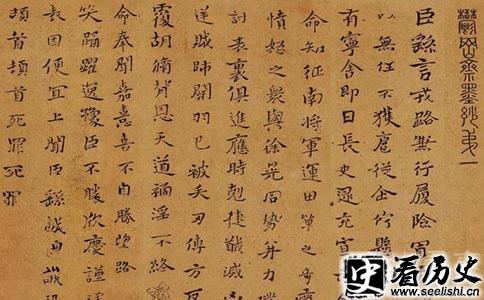 鬱岡齋墨妙第一
臣繇言戎路兼行履險冒
以無任不獲扈從企佇縣
有寧舍即日長史逯充宣
命知征南將軍運田單之奇
憤怒之衆與徐晃同勢并力
討表裏俱進應時剋捷馘滅
逆賊帥關羽已被矢刃傅方反
覆胡脩背恩天道禍淫不終
命奉聞嘉憙喜不自勝望路
笑踊躍逸豫臣不勝欣慶謹
表因便宜上聞臣繇誠皇誠恐
頓首頓首死罪死罪
史看历史
www.seelishi.cn